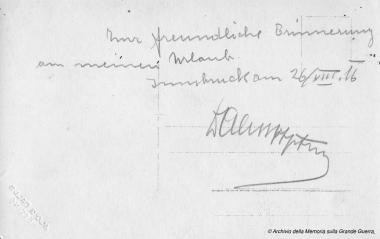 Zur freundliche Erinnerung
an meinen Urlaub
Innsbruck am 26/VIII.16
© Archivio della Memoria sulla Grande Guerra,